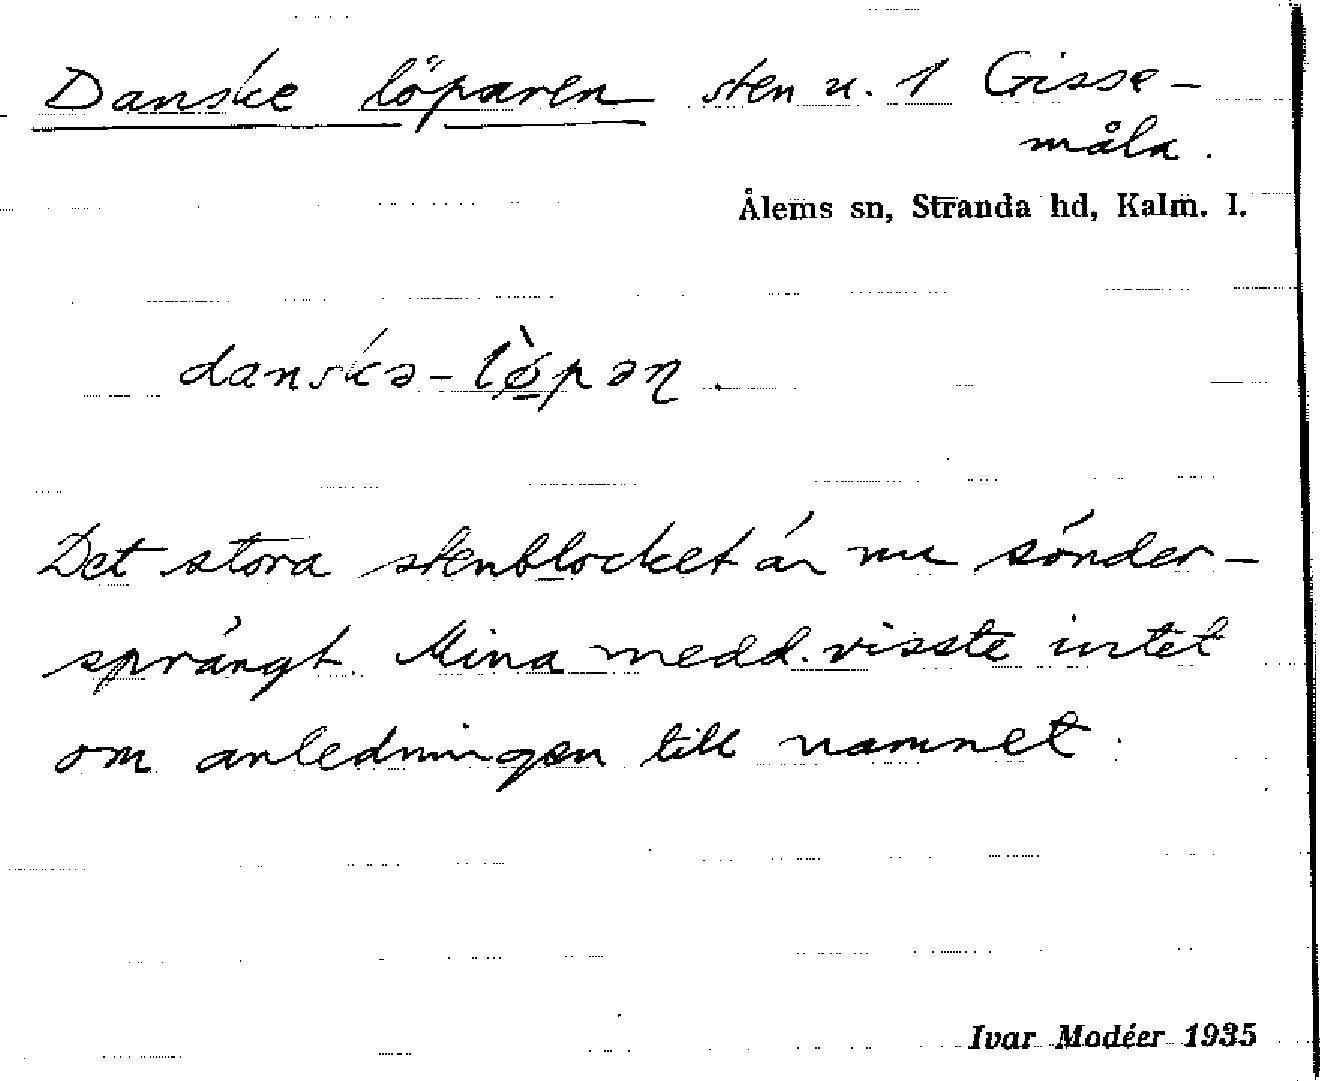 Danske löparen sten u. 1 Gisse-
måla.
Ålems sn, Stranda hd, Kalm. l.
danskə-lø̀pəɳ.
Det stora stenblocket är nu sönder-
sprängt. Mina medd. visste intet
om anledningen till namnet.
Ivar Modéer 1935